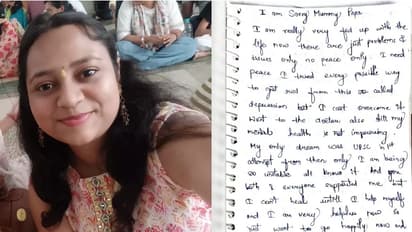 I am Sorry Mummy Papa
I am really very fed up with the
life now there are just problems &
issues only no peace only. I need
peace I tried every possible way
to get rid from this so called
depression but I can't overcome it
Went to the doctor also still my
mental health is not improving.
My only dream was UPSC in 1st
attempt from then only I am being
so unstable all know it. And you
both & everyone supported me but
I can't heal untill I help myself
and I am very helpless now so
just want to go happily now and